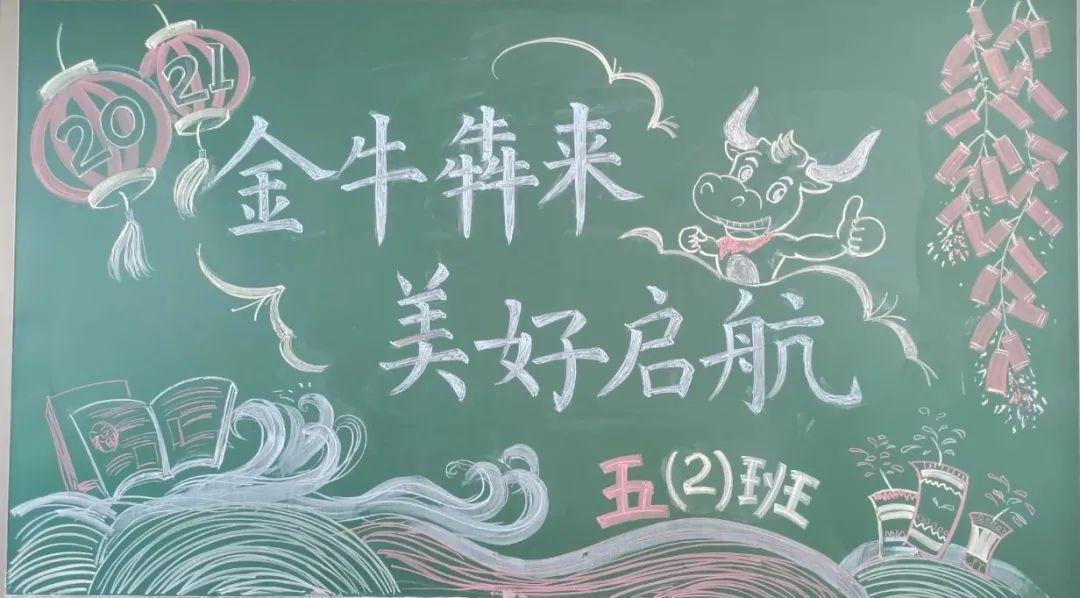 2021
金牛犇来
美好启航
五(2)班